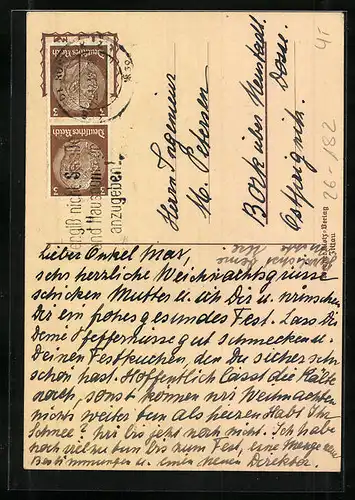 Deutsches Reich
3
Deutsches Reich
3
Straße
und Hausnummer
anzugeben!
Herrn Ingenieur
M. Petersen
Bork über Neustadt
Dosse
Ostprignitz.
41
26-182
Zittau
Lieber Onkel Max,
sehr herzliche Weihnachtsgrüsse
schicken Mutter u. ich Dir u. wünschen
Dir ein frohes gesundes Fest. Lass Dir
Deine Pfeffernüsse gut schmecken u.
Deinen Festkuchen, den Du sicher schon
hast. Hoffentlich lässt die Kälte
nach, sonst können wir Weihnachten
nichts weiter tun als heizen. Habt Ihr
Schnee? Wir bis jetzt noch nicht. Ich habe
noch viel zu tun bis zum Fest, eine Menge neue
Bestimmungen u. einen neuen Direktor.